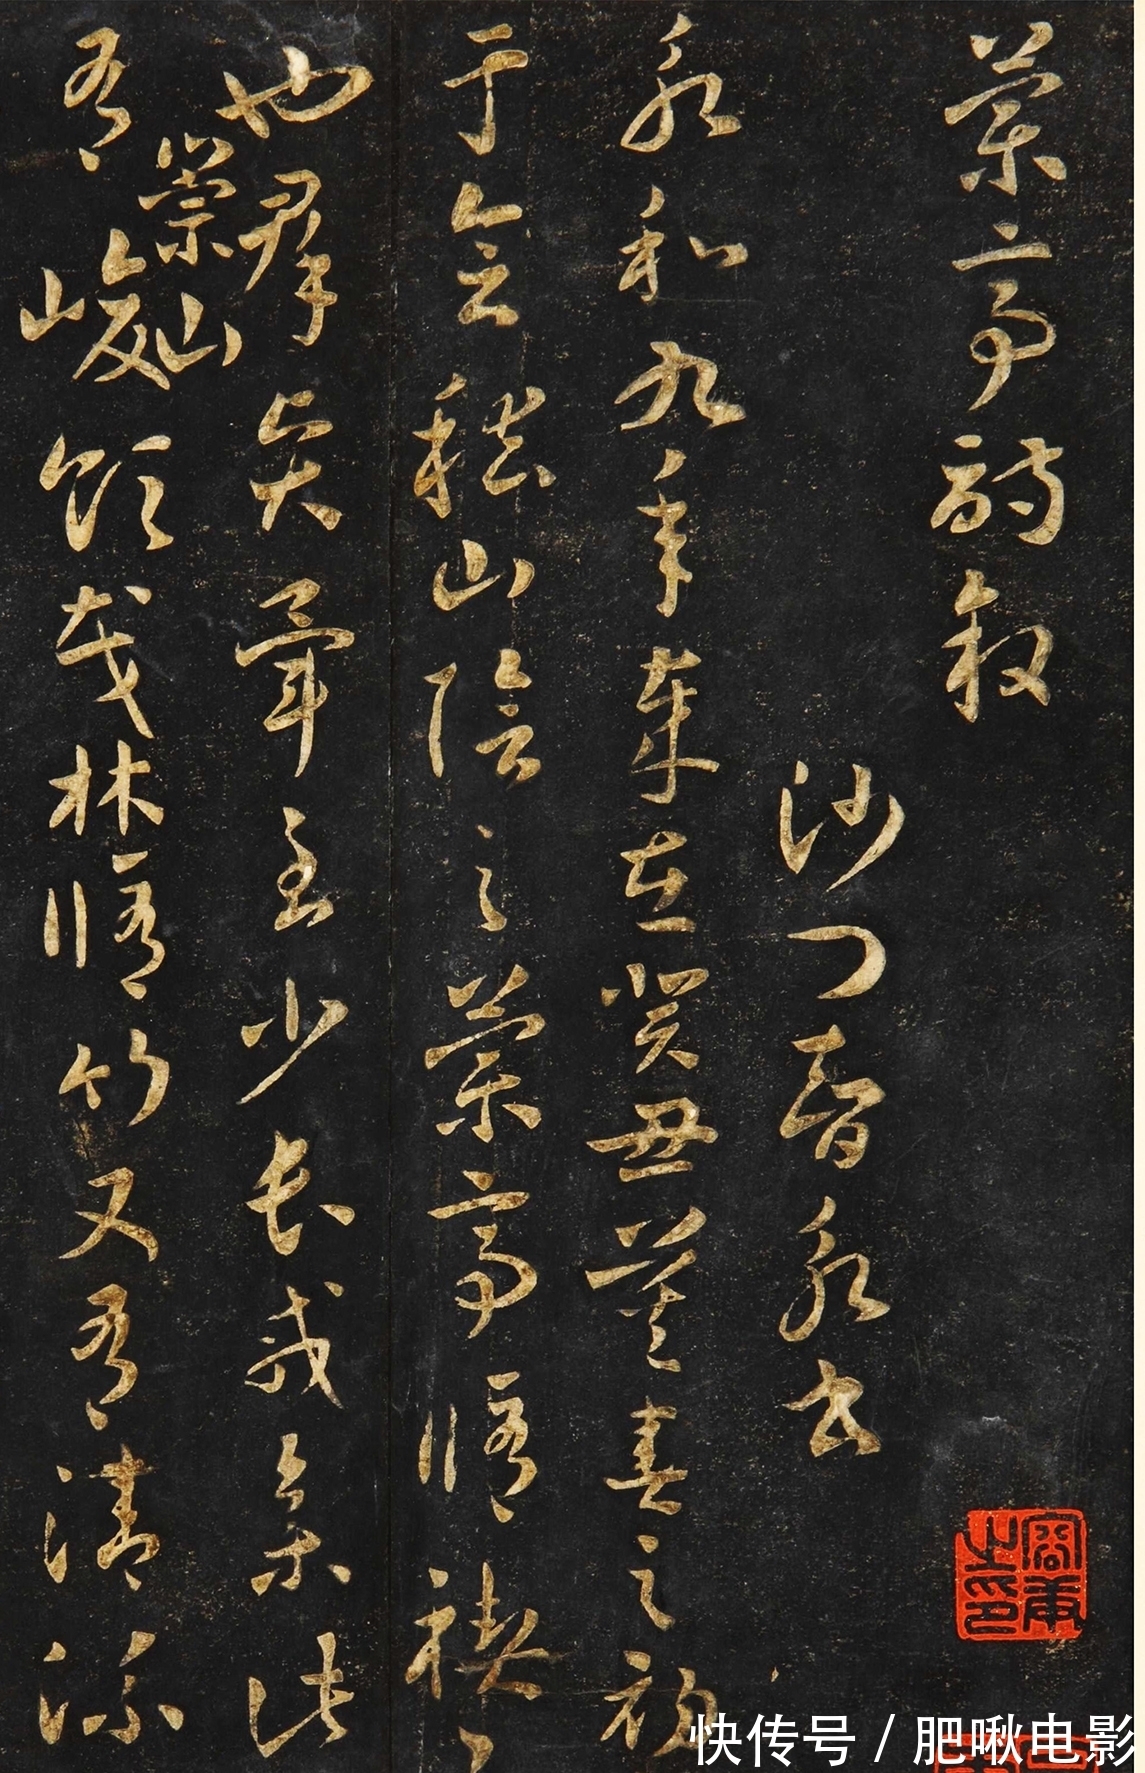 蘭亭詩敘
沙門智永書
永和九年歲在癸丑暮春之初
于會稽山陰之蘭亭脩禊
也羣賢畢至少長咸集此
有崇山峻領茂林脩竹又有清流
快传号 / 肥啾电影